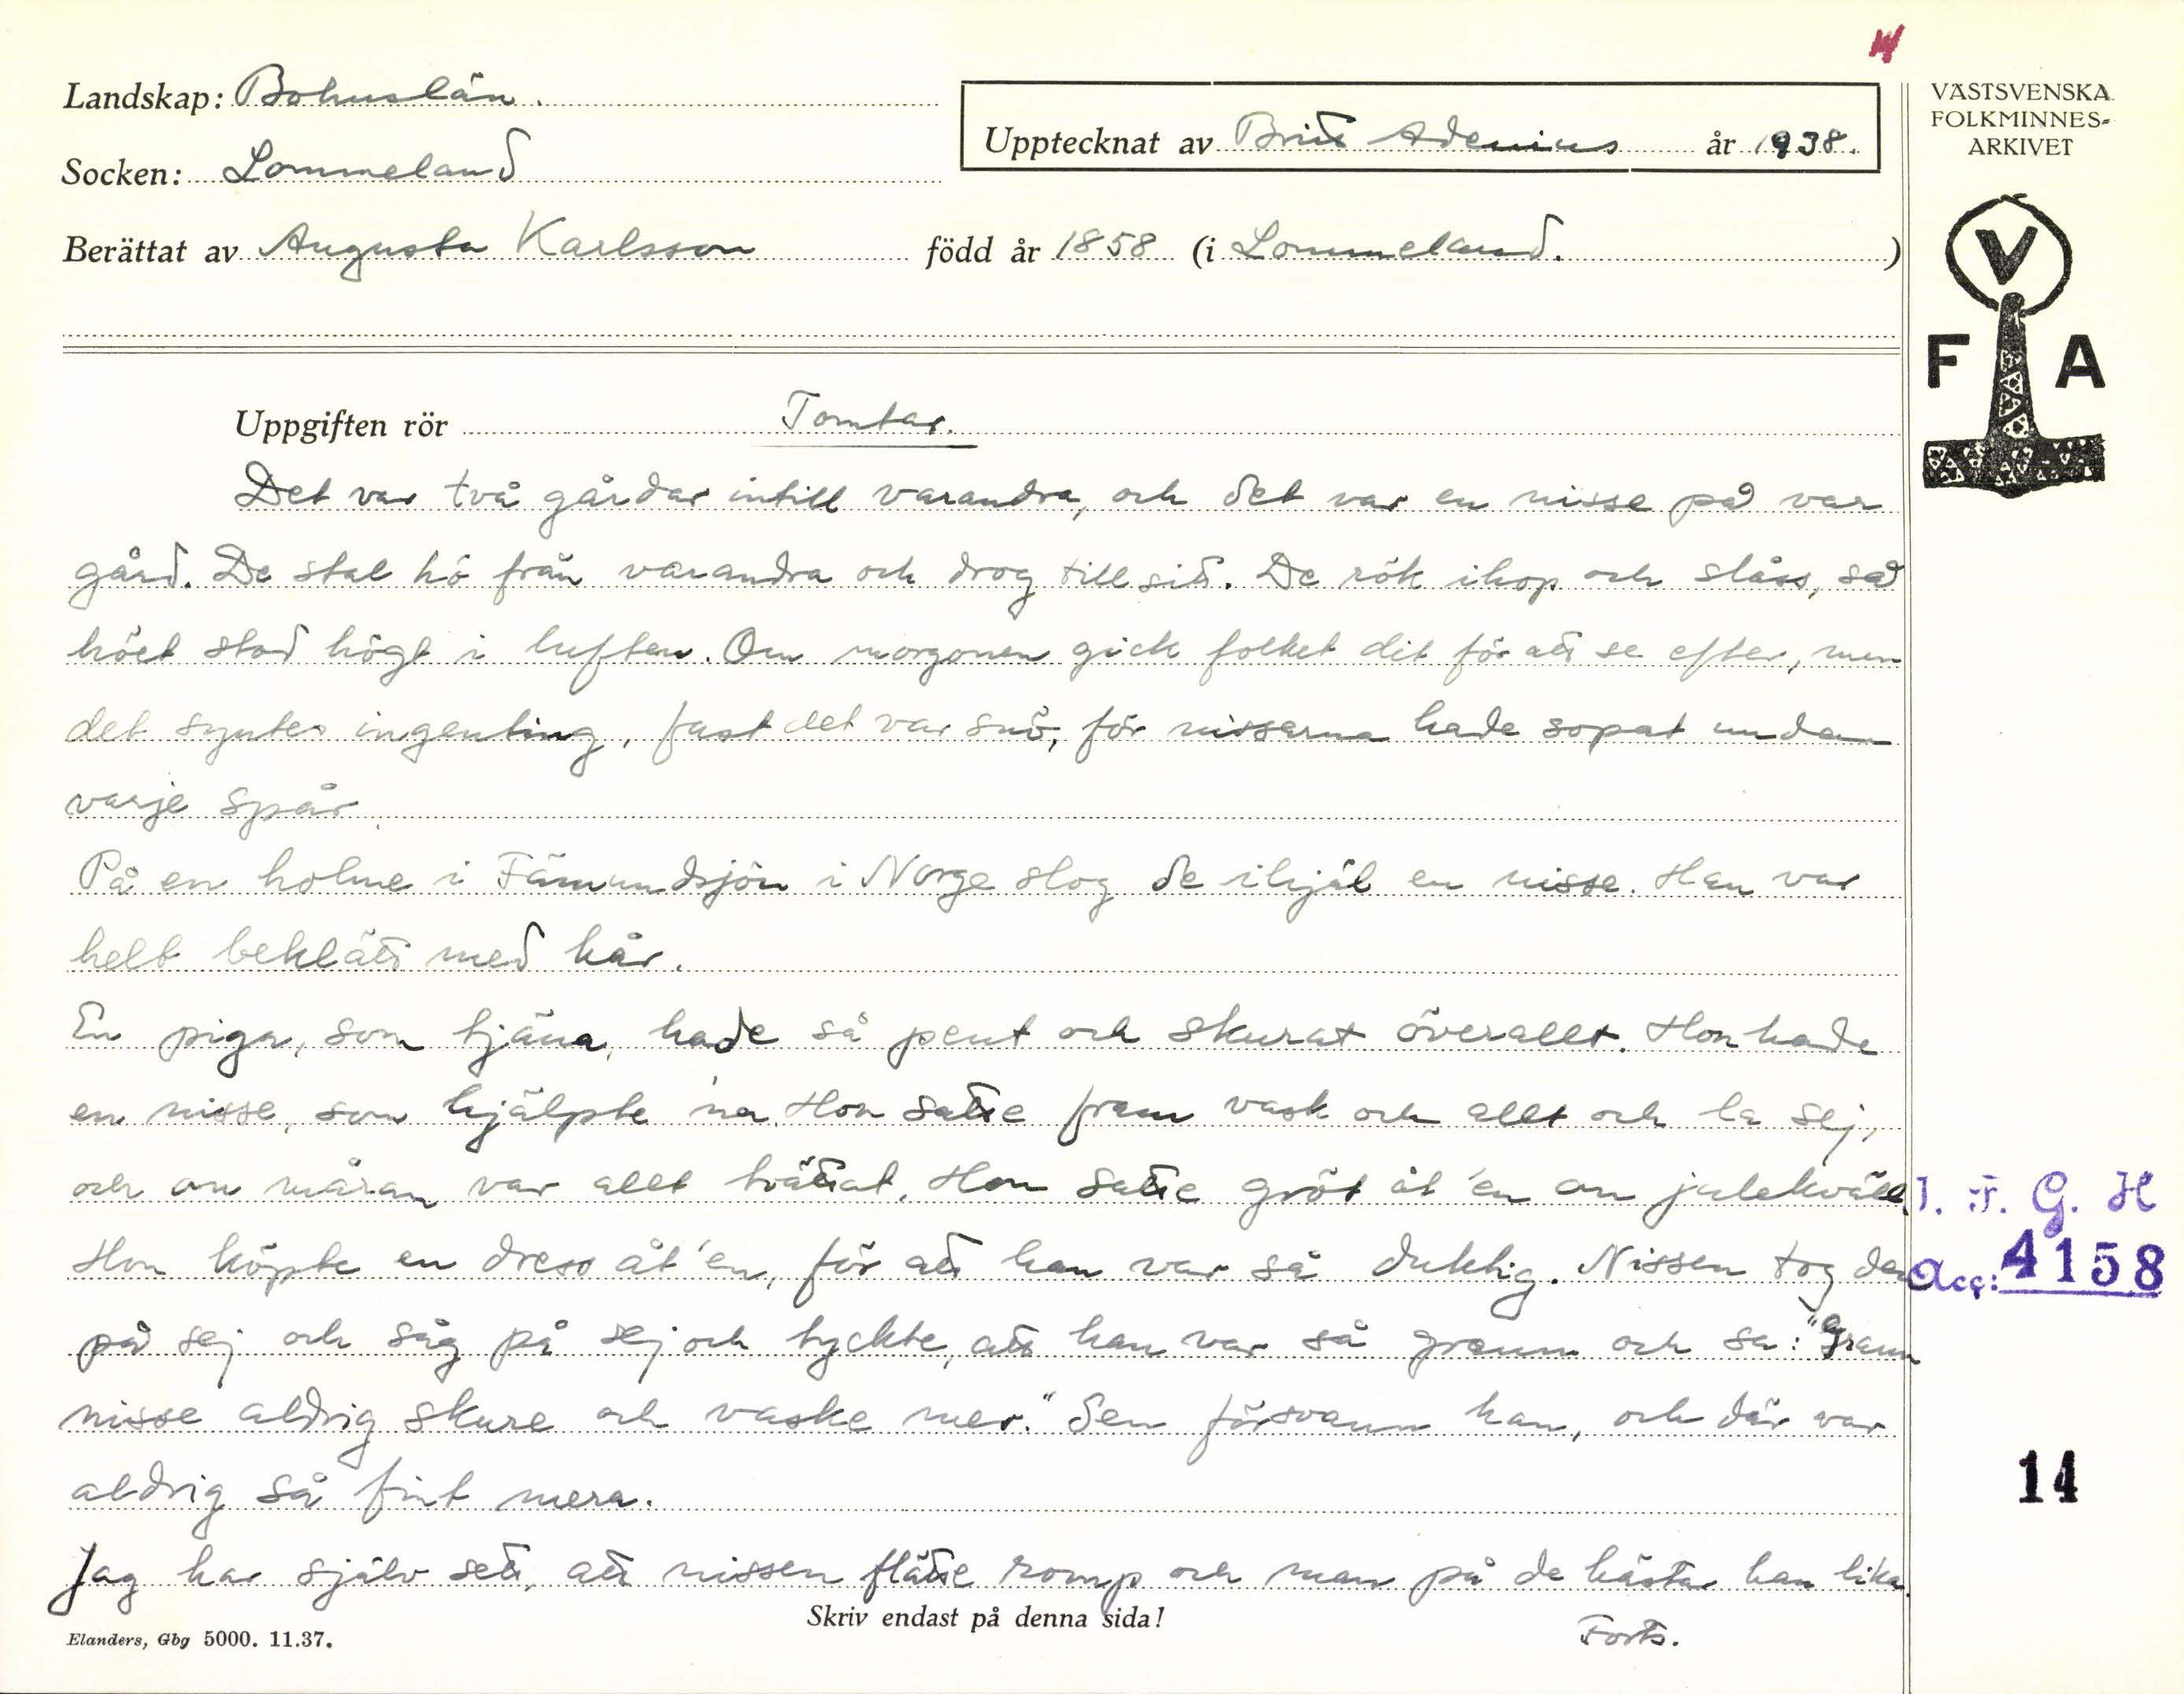 Landskap: Bohuslän.
Upptecknat av Britt Adenius år 1938.
VÄSTSVENSKA
FOLKMINNES-
ARKIVET
Socken: Lommeland
Berättat av Augusta Karlsson född år 1858 (i Lommeland.)
V
F A
Uppgiften rör Tomtar.
Det var två gårdar intill varandra, och det var en nisse på var
gård. De stal hö från varandra och drog till sitt. De rök ihop och slåss, så
höet stod högt i luften. Om morgonen gick folket dit för att se efter, men
det syntes ingenting, fast det var snö, för nisserna hade sopat undan
varje spår.
På en holme i Fämundsjön i Norge slog de ihjäl en nisse. Han var
helt beklätt med hår.
En piga, som tjäna, hade så pent och skurat överallt. Hon hade
en nisse, som hjälpte 'na. Hon satte fram vask och allt och la sej,
och om måran var allt tvättat. Hon satte gröt åt 'en om julekväll.
Hon köpte en dress åt 'en, för att han var så duktig. Nissen tog den
på sej och såg på sej och tyckte, att han var så grann och sa: "Grann
nisse aldrig skure och vaske mer." Sen försvann han, och där var
aldrig så fint mera.
Jag har själv sett, att nissen flätte romp och man på de hästar han lika.
Forts.
I. F. G. H
Acc: 4158
14
Skriv endast på denna sida!
Elanders, Gbg 5000. 11.37.